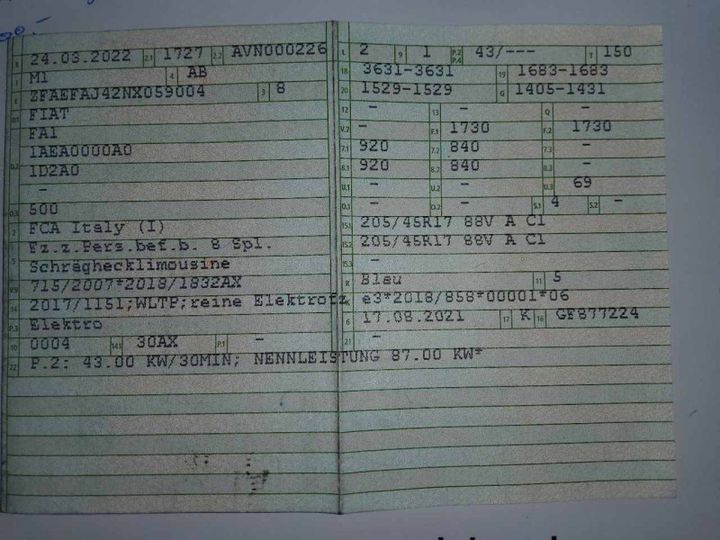 B 24.03.2022 2.1 1727 2.2 AVN000226
J M1 4 AB
E ZFAEFAJ42NX059004 3 8
D.1 FIAT
FA1
D.2 1AEA0000A0
1D2A0
-
D.3 500
2 FCA Italy (I)
5 Fz.z.Pers.bef.b. 8 Spl.
Schräghecklimousine
V.9 715/2007*2018/1832AX
14 2017/1151;WLTP;reine Elektrofz
P.3 Elektro
10 0004 14.1 30AX P.1 -
22 P.2: 43.00 KW/30MIN; NENNLEISTUNG 87.00 KW*
L 2 9 1 P.2 P.4 43/--- T 150
18 3631-3631 19 1683-1683
20 1529-1529 G 1405-1431
12 - 13 - Q -
V.7 - F.1 1730 F.2 1730
7.1 920 7.2 840 7.3 -
8.1 920 8.2 840 8.3 -
U.1 - U.2 - U.3 69
O.1 - O.2 - S.1 4 S.2 -
15.1 205/45R17 88V A C1
15.2 205/45R17 88V A C1
15.3 -
R Blau 11 5
K e3*2018/858*00001*06
6 17.08.2021 17 K 16 GF877224
21 -